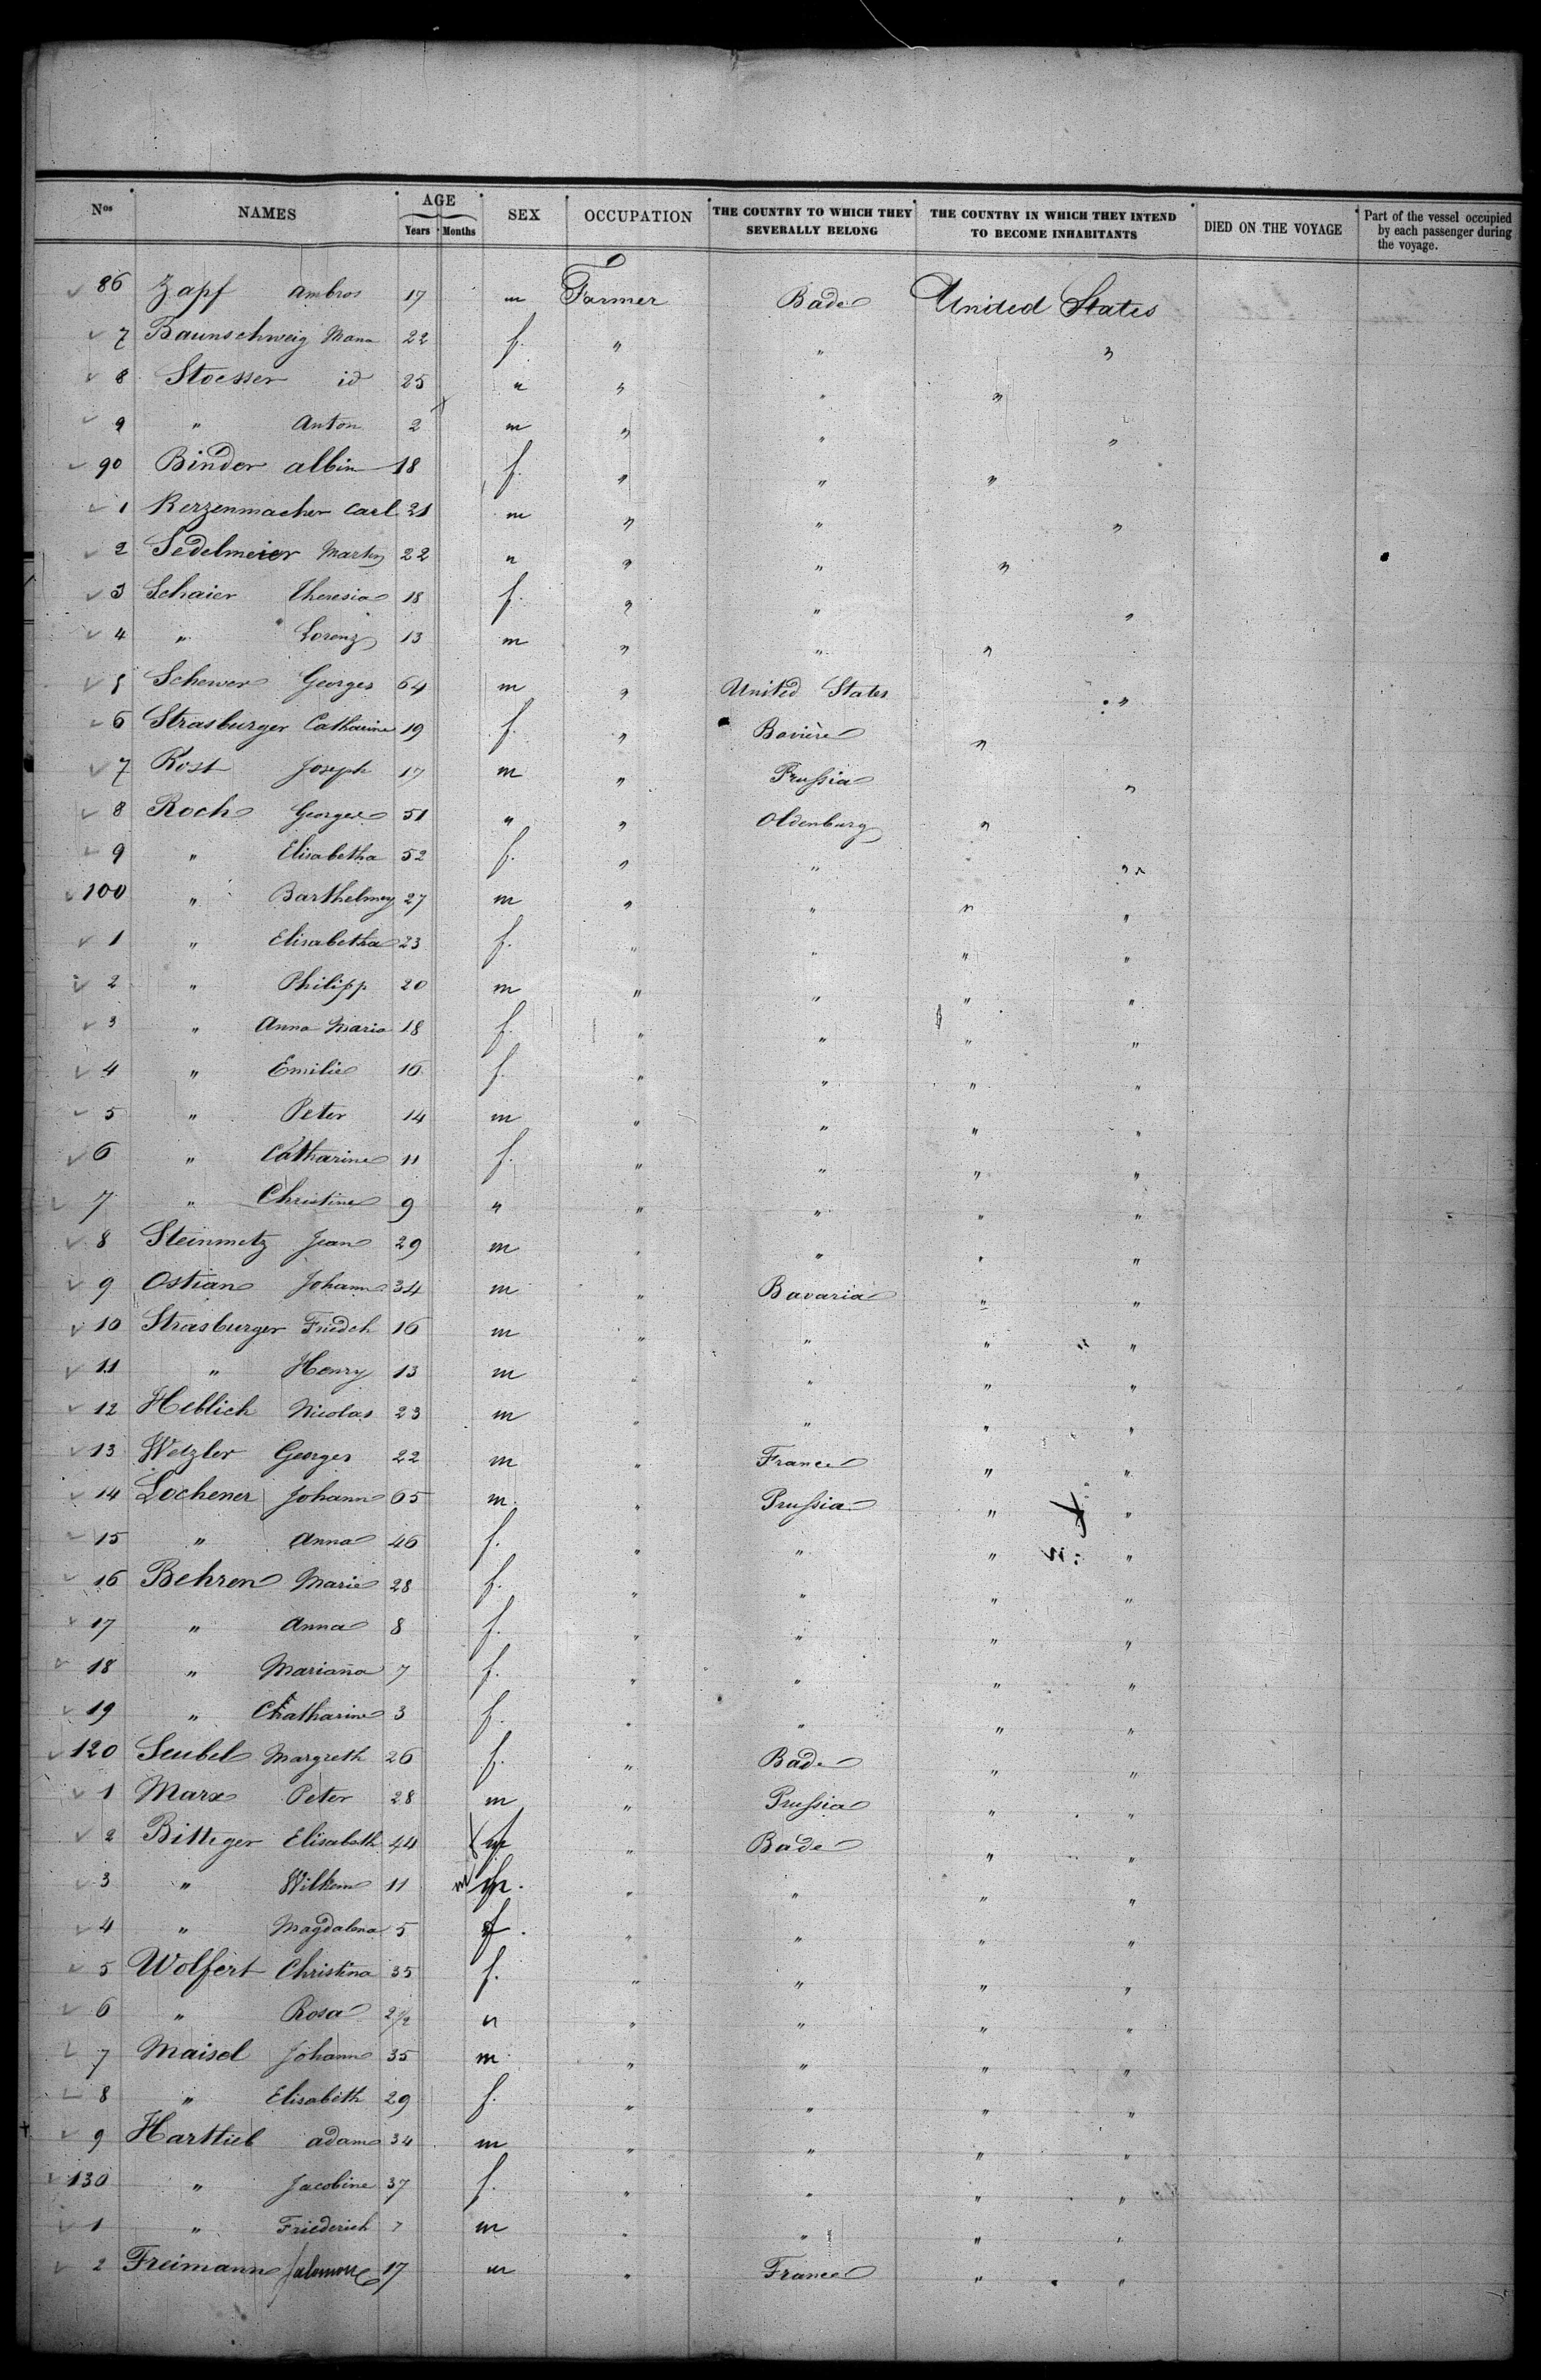 Nos NAMES AGE Years Months SEX OCCUPATION THE COUNTRY TO WHICH THEY SEVERALLY BELONG THE COUNTRY IN WHICH THEY INTEND TO BECOME INHABITANTS DIED ON THE VOYAGE Part of the vessel occupied by each passenger during the voyage.
86 Zapf Ambros 17 m Farmer Bade United States
7 Baunschweig Mana 22 f. " " "
8 Stoesser id 25 " " " "
9 " Anton 2 m " " "
90 Binder Albin 18 f. " " "
1 Kerzenmacher Carl 21 m " " "
2 Sedelmeier Martin 22 " " " "
3 Schaier Theresia 18 f. " " "
4 " Lorenz 13 m " " "
5 Scherver Georges 64 m " United States "
6 Strasburger Catharine 19 f. " Bavière "
7 Rost Joseph 17 m " Prussia "
8 Roch George 51 " " Oldenburg "
9 " Elisabetha 52 f. " " "
100 " Barthelmey 27 m " " " "
1 " Elisabetha 23 f. " " " "
2 " Philipp 20 m " " " "
3 " Anna Maria 18 f. " " " "
4 " Emilie 16 f. " " " "
5 " Peter 14 m " " " "
6 " Catharine 11 f. " " " "
7 " Christine 9 " " " " "
8 Steinmetz Jean 29 m " " " "
9 Ostian Johann 34 m " Bavaria " "
10 Strasburger Friedch 16 m " " " " "
11 " Henry 13 m " " " "
12 Heblich Nicolas 23 m " " " "
13 Wetzler Georges 22 m " France " "
14 Lochener Johann 65 m. " Prussia " "
15 " Anna 46 f. " " " "
16 Behren Marie 28 f. " " " "
17 " Anna 8 f. " " " "
18 " Mariana 7 f. " " " "
19 " Chatharine 3 f. " " " "
120 Seubel Margreth 26 f. " Bade " "
1 Marx Peter 28 m " Prussia " "
2 Bittiger Elisabeth 44 f " Bade " "
3 " Wilhem 11 m " " " "
4 " Magdalena 5 f. " " " "
5 Wolfert Christina 35 f. " " " "
6 " Rosa 2 1/2 " " " " "
7 Maisel Johann 35 m " " " "
8 " Elisabeth 29 f. " " " "
9 Harttieb Adam 34 m " " " "
130 " Jacobine 37 f. " " " "
1 " Friederich 7 m " " " "
2 Freimann Salomon 17 m " France " "